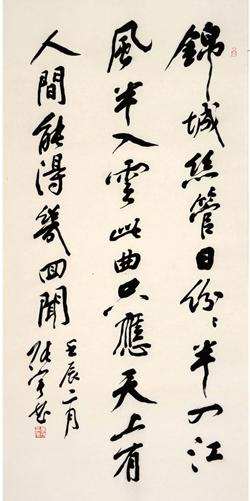 錦城絲管日紛紛半入江
風半入雲此曲只應天上有
人間能得幾回聞
壬辰二月